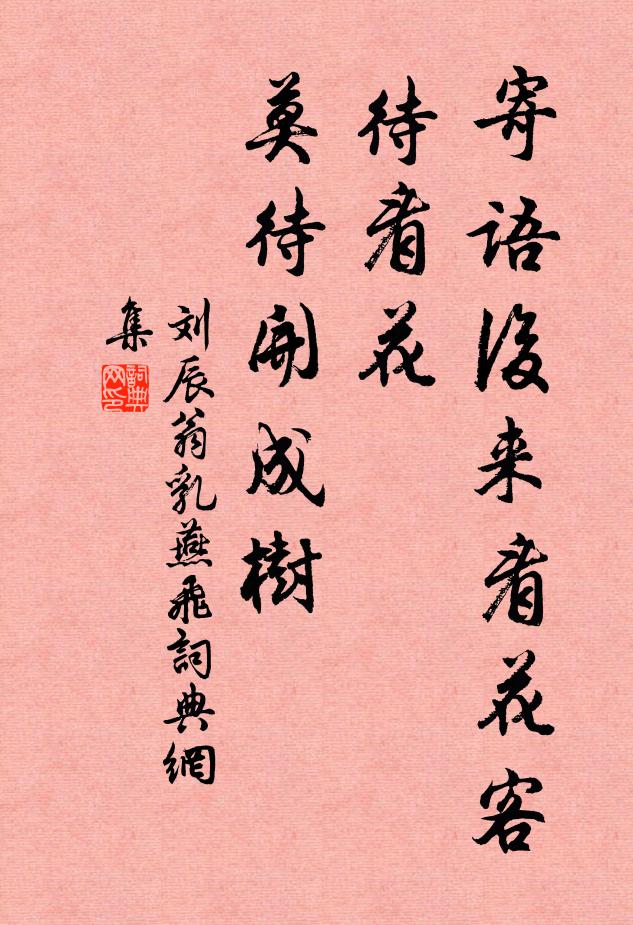 寄语後来看花客
待看花
莫待开成樹
刘辰翁乳燕飛詞典網
集
詞典网印